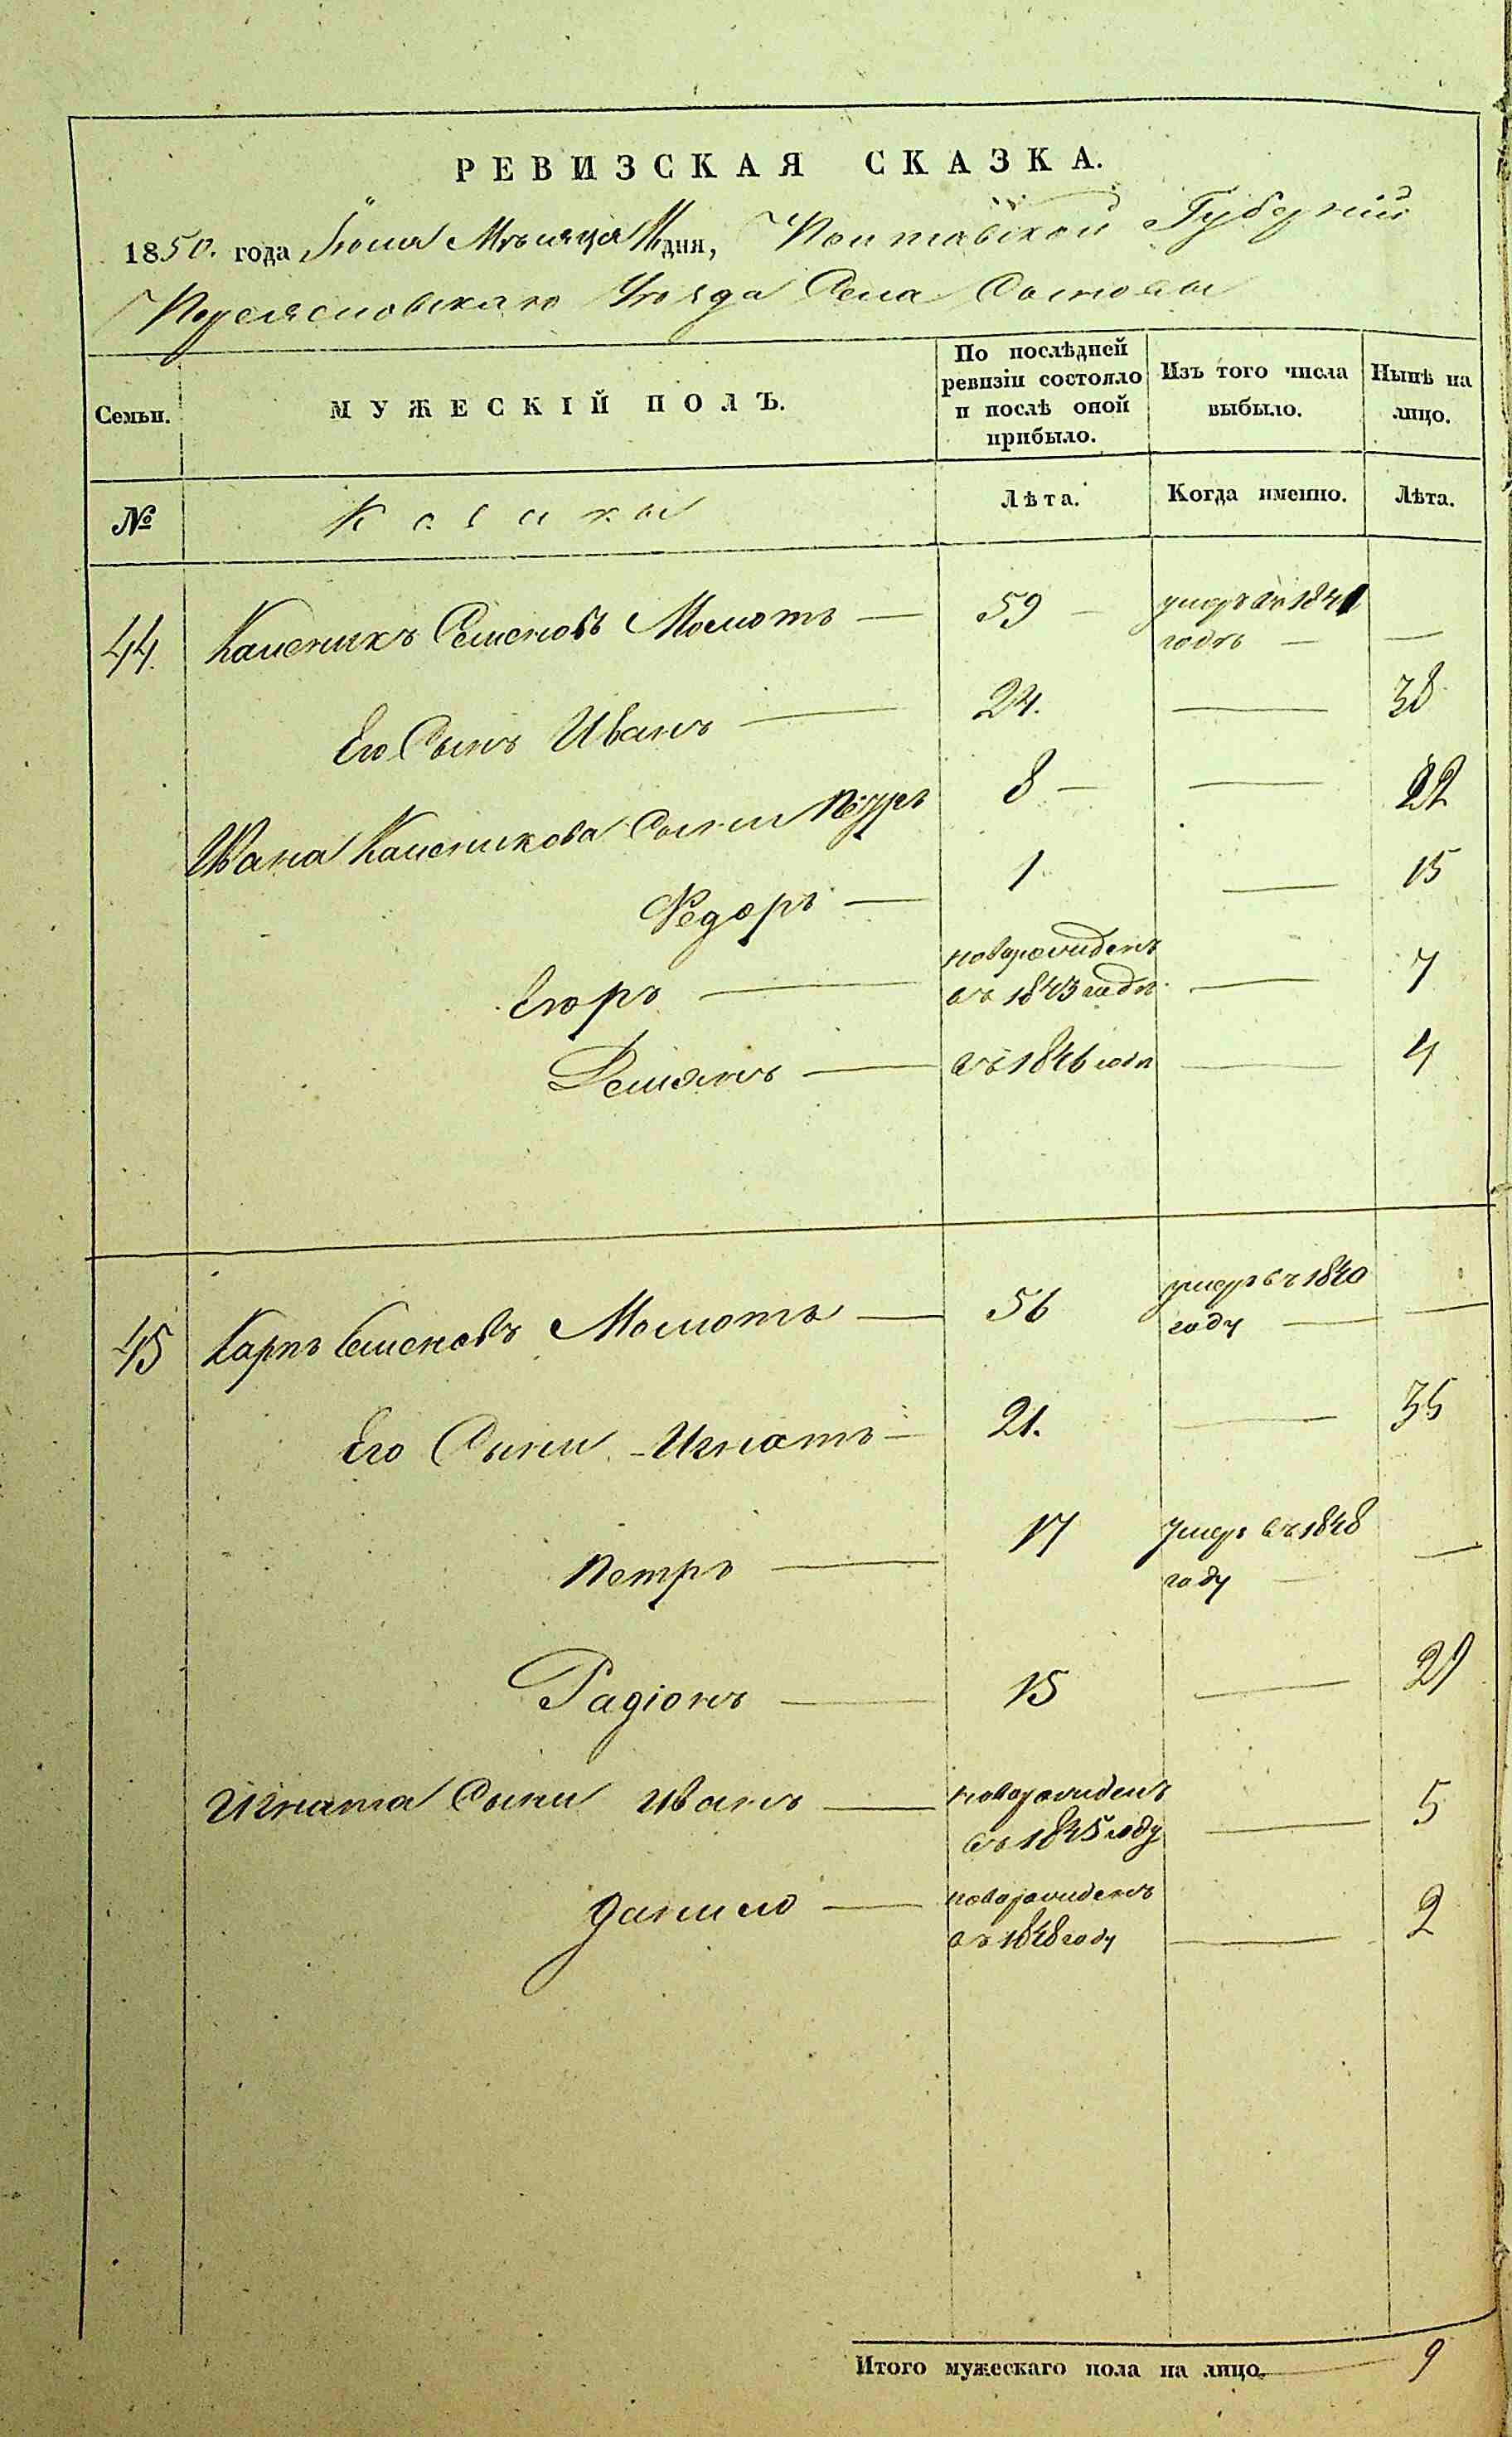 РЕВИЗСКАЯ СКАЗКА.
1850. года Іюля Мѣсяца дня, Полтавской Губерніи
Переясловскаго Уѣзда Села Сосновы
Семьи.
МУЖЕСКІЙ ПОЛЪ.
По послѣдней
ревизіи состояло
и послѣ оной
прибыло.
Изъ того числа
выбыло.
Нынѣ на
лицо.
№
Козаки
Лѣта.
Когда именно.
Лѣта.
44. Каленикъ Семеновъ Момотъ — 59 — умеръ въ 1841
годѣ — —
Его Сынъ Иванъ — 24. — 38
Ивана Каленикова Сыны Петръ 8 — — 22
Федоръ — 1 — 15
новорожденъ
Егоръ — въ 1843 годѣ — 7
Демянъ — въ 1846 годѣ — 4
45 Карпъ Семеновъ Момотъ — 56 умеръ въ 1840
году — —
Его Сыны Игнатъ — 21. — 35
Петръ — 17 умеръ въ 1848
году — —
Радіонъ — 15 — 29
Игната Сыны Иванъ — новорожденъ
въ 1845 году — 5
Данило — новорожденъ
въ 1848 году — 2
Итого мужескаго пола на лицо. — 9